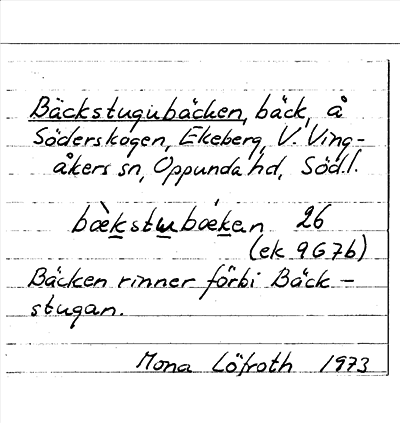 Bäckstugubäcken, bäck, å
Söderskogen, Ekeberg, V. Ving-
åkers sn, Oppunda hd, Södl.
bæ̀kstɯbǽken 26
(ek 9G7b)
Bäcken rinner förbi Bäck-
stugan.
Mona Löfroth 1973